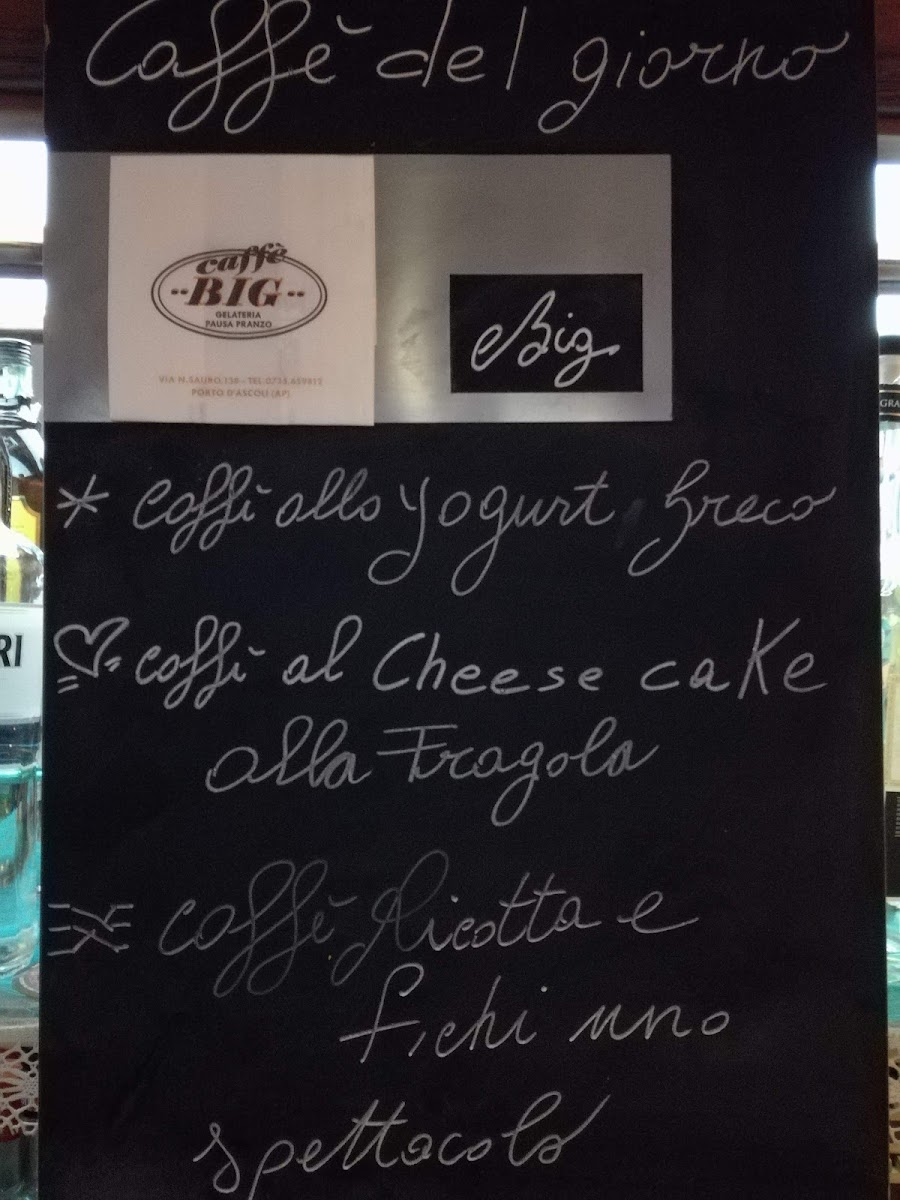 Caffè del giorno
caffè
BIG
GELATERIA
PAUSA PRANZO
VIA N.SAURO,158 - TEL.0735.659812
PORTO D'ASCOLI (AP)
Big
* caffè allo yogurt Greco
caffè al Cheese cake
alla Fragola
caffè Ricotta e
fichi uno
spettacolo
RI
GRA